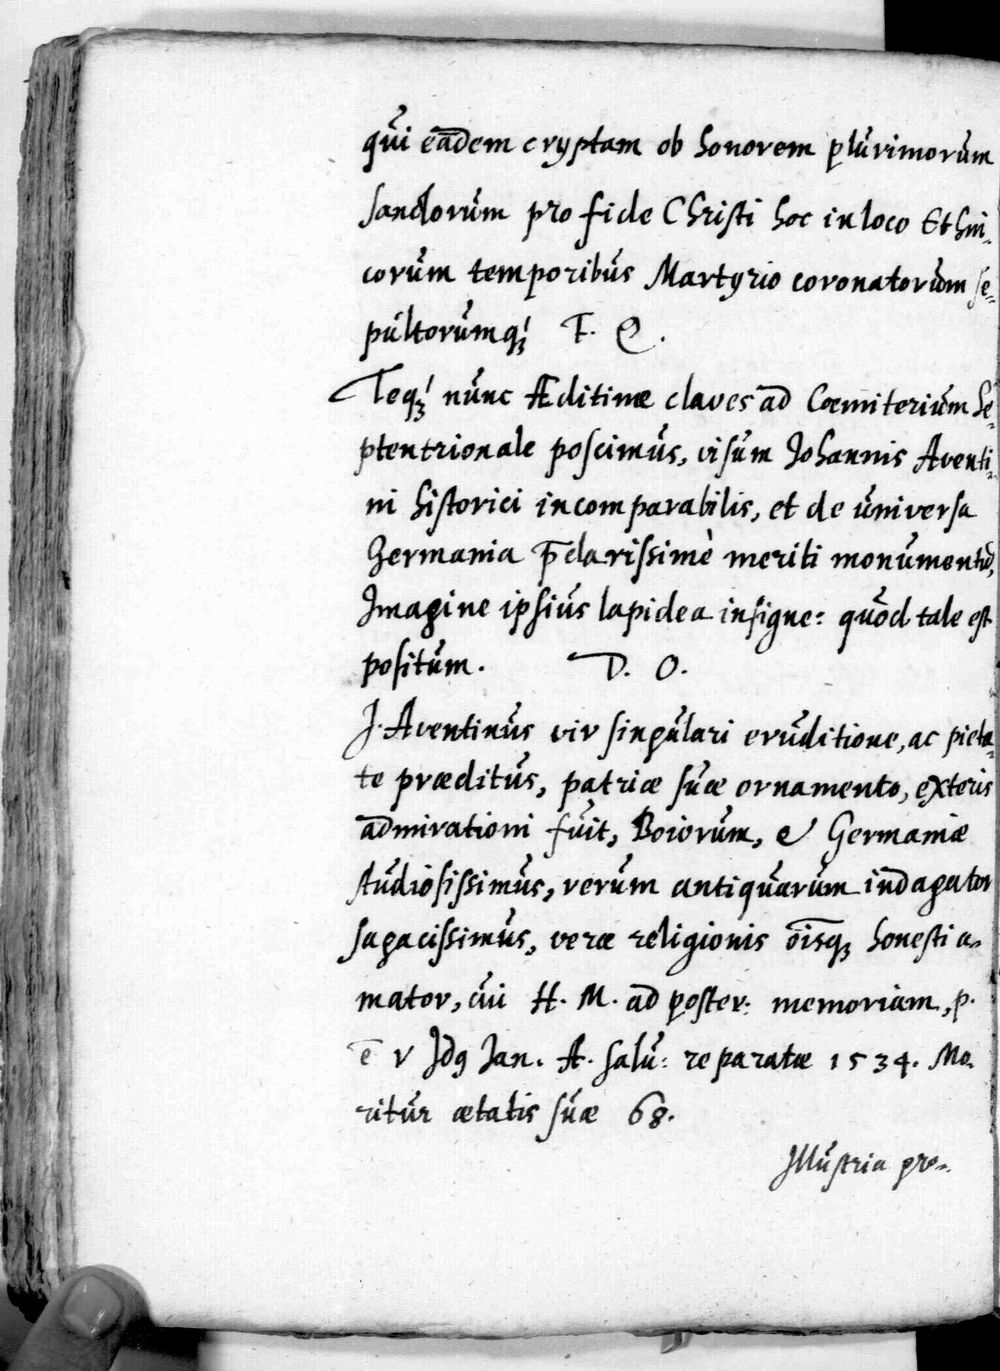 qui eadem cryptam ob honorem plurimorum
sanctorum pro fide Christi hoc in loco Ethni-
corum temporibus Martyrio coronatorum se-
pultorumqꝫ F. Q.
Teqꝫ nunc Ædituae claves ad Cœmiterium Se-
ptentrionale poscimus, visum Johannis Aventi-
ni historici incomparabilis, et de universa
Germania p̄clarissimè meriti monumentū,
Imagine ipsius lapidea insigne: quod tale est
positum. D. O.
J. Aventinus vir singulari eruditione, ac pieta-
te præditus, patriæ suæ ornamento, exteris
admirationi fuit, Boiorum, & Germaniæ
studiosissimus, rerum antiquarum indagator
sagacissimus, veræ religionis oīsqꝫ honesti a-
mator, cui H. M. ad poster: memoriam, p.
ē v Idꝯ Jan. A. salu: reparatæ 1534. Mo-
ritur ætatis suæ 68.
Illustria pro-